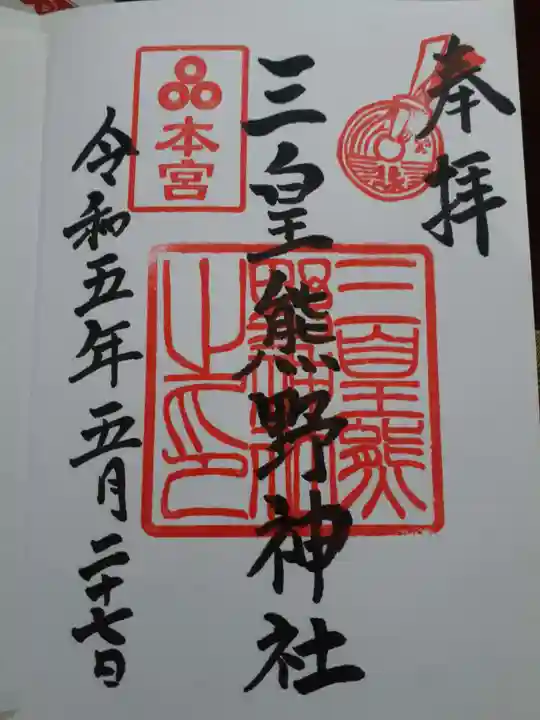 奉拝
三皇熊野神社
三皇熊野神社之印
本宮
令和五年五月二十七日